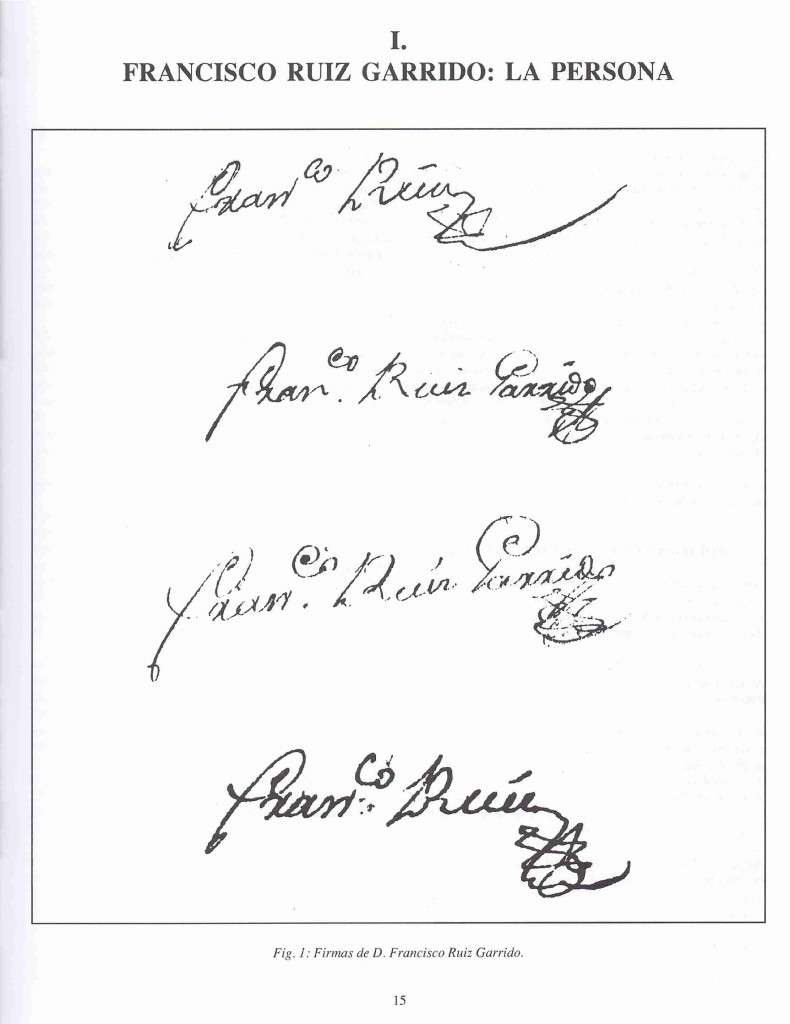 I.
FRANCISCO RUIZ GARRIDO: LA PERSONA
Fran^co Ruiz
Fran^co. Ruiz Garrido
Fran^co. Ruiz Garrido
Fran^co. Ruiz
Fig. 1: Firmas de D. Francisco Ruiz Garrido.
15